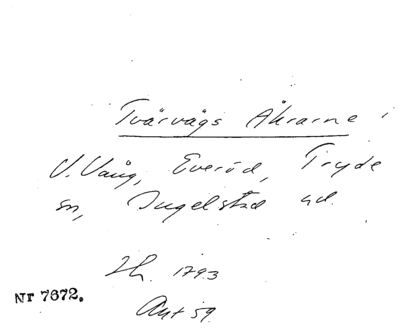 Tvärvägs Åkrarne i
V. Vång, Everöd, Tryde
sn, Ingelstad hd.
Lh. 1793
Akt 59.
Nr 7672.